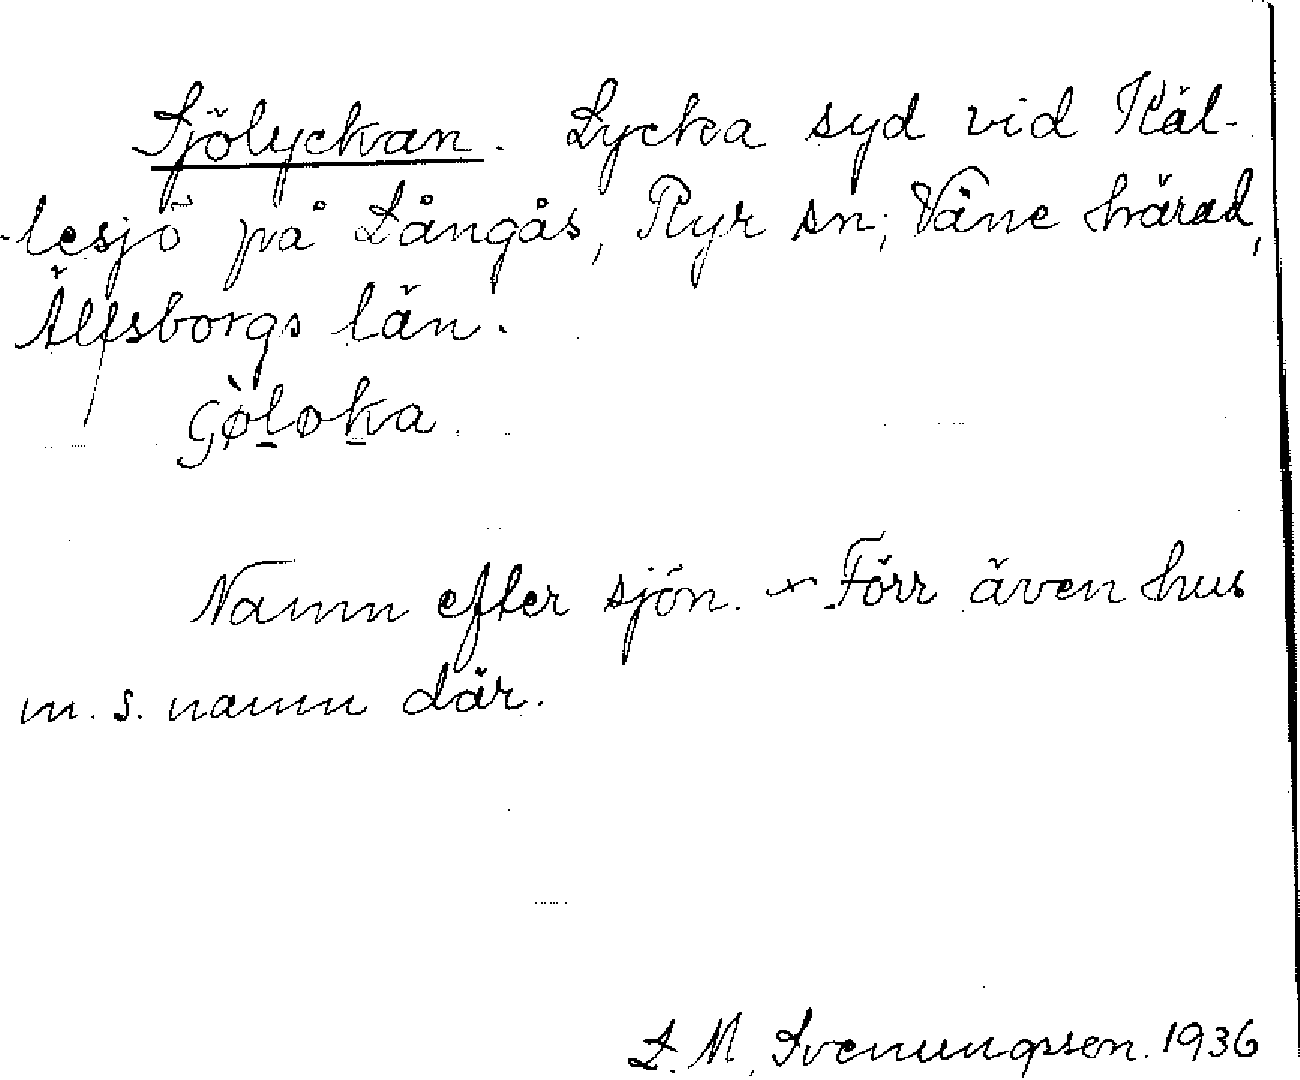 Sjölyckan. Lycka syd vid Käl-
lesjö på Långås, Ryr sn; Väne härad,
Älfsborgs län.
Gòloka.
Namn efter sjön. – Förr även hus
m. s. namn där.
L. M. Svenungsson. 1936